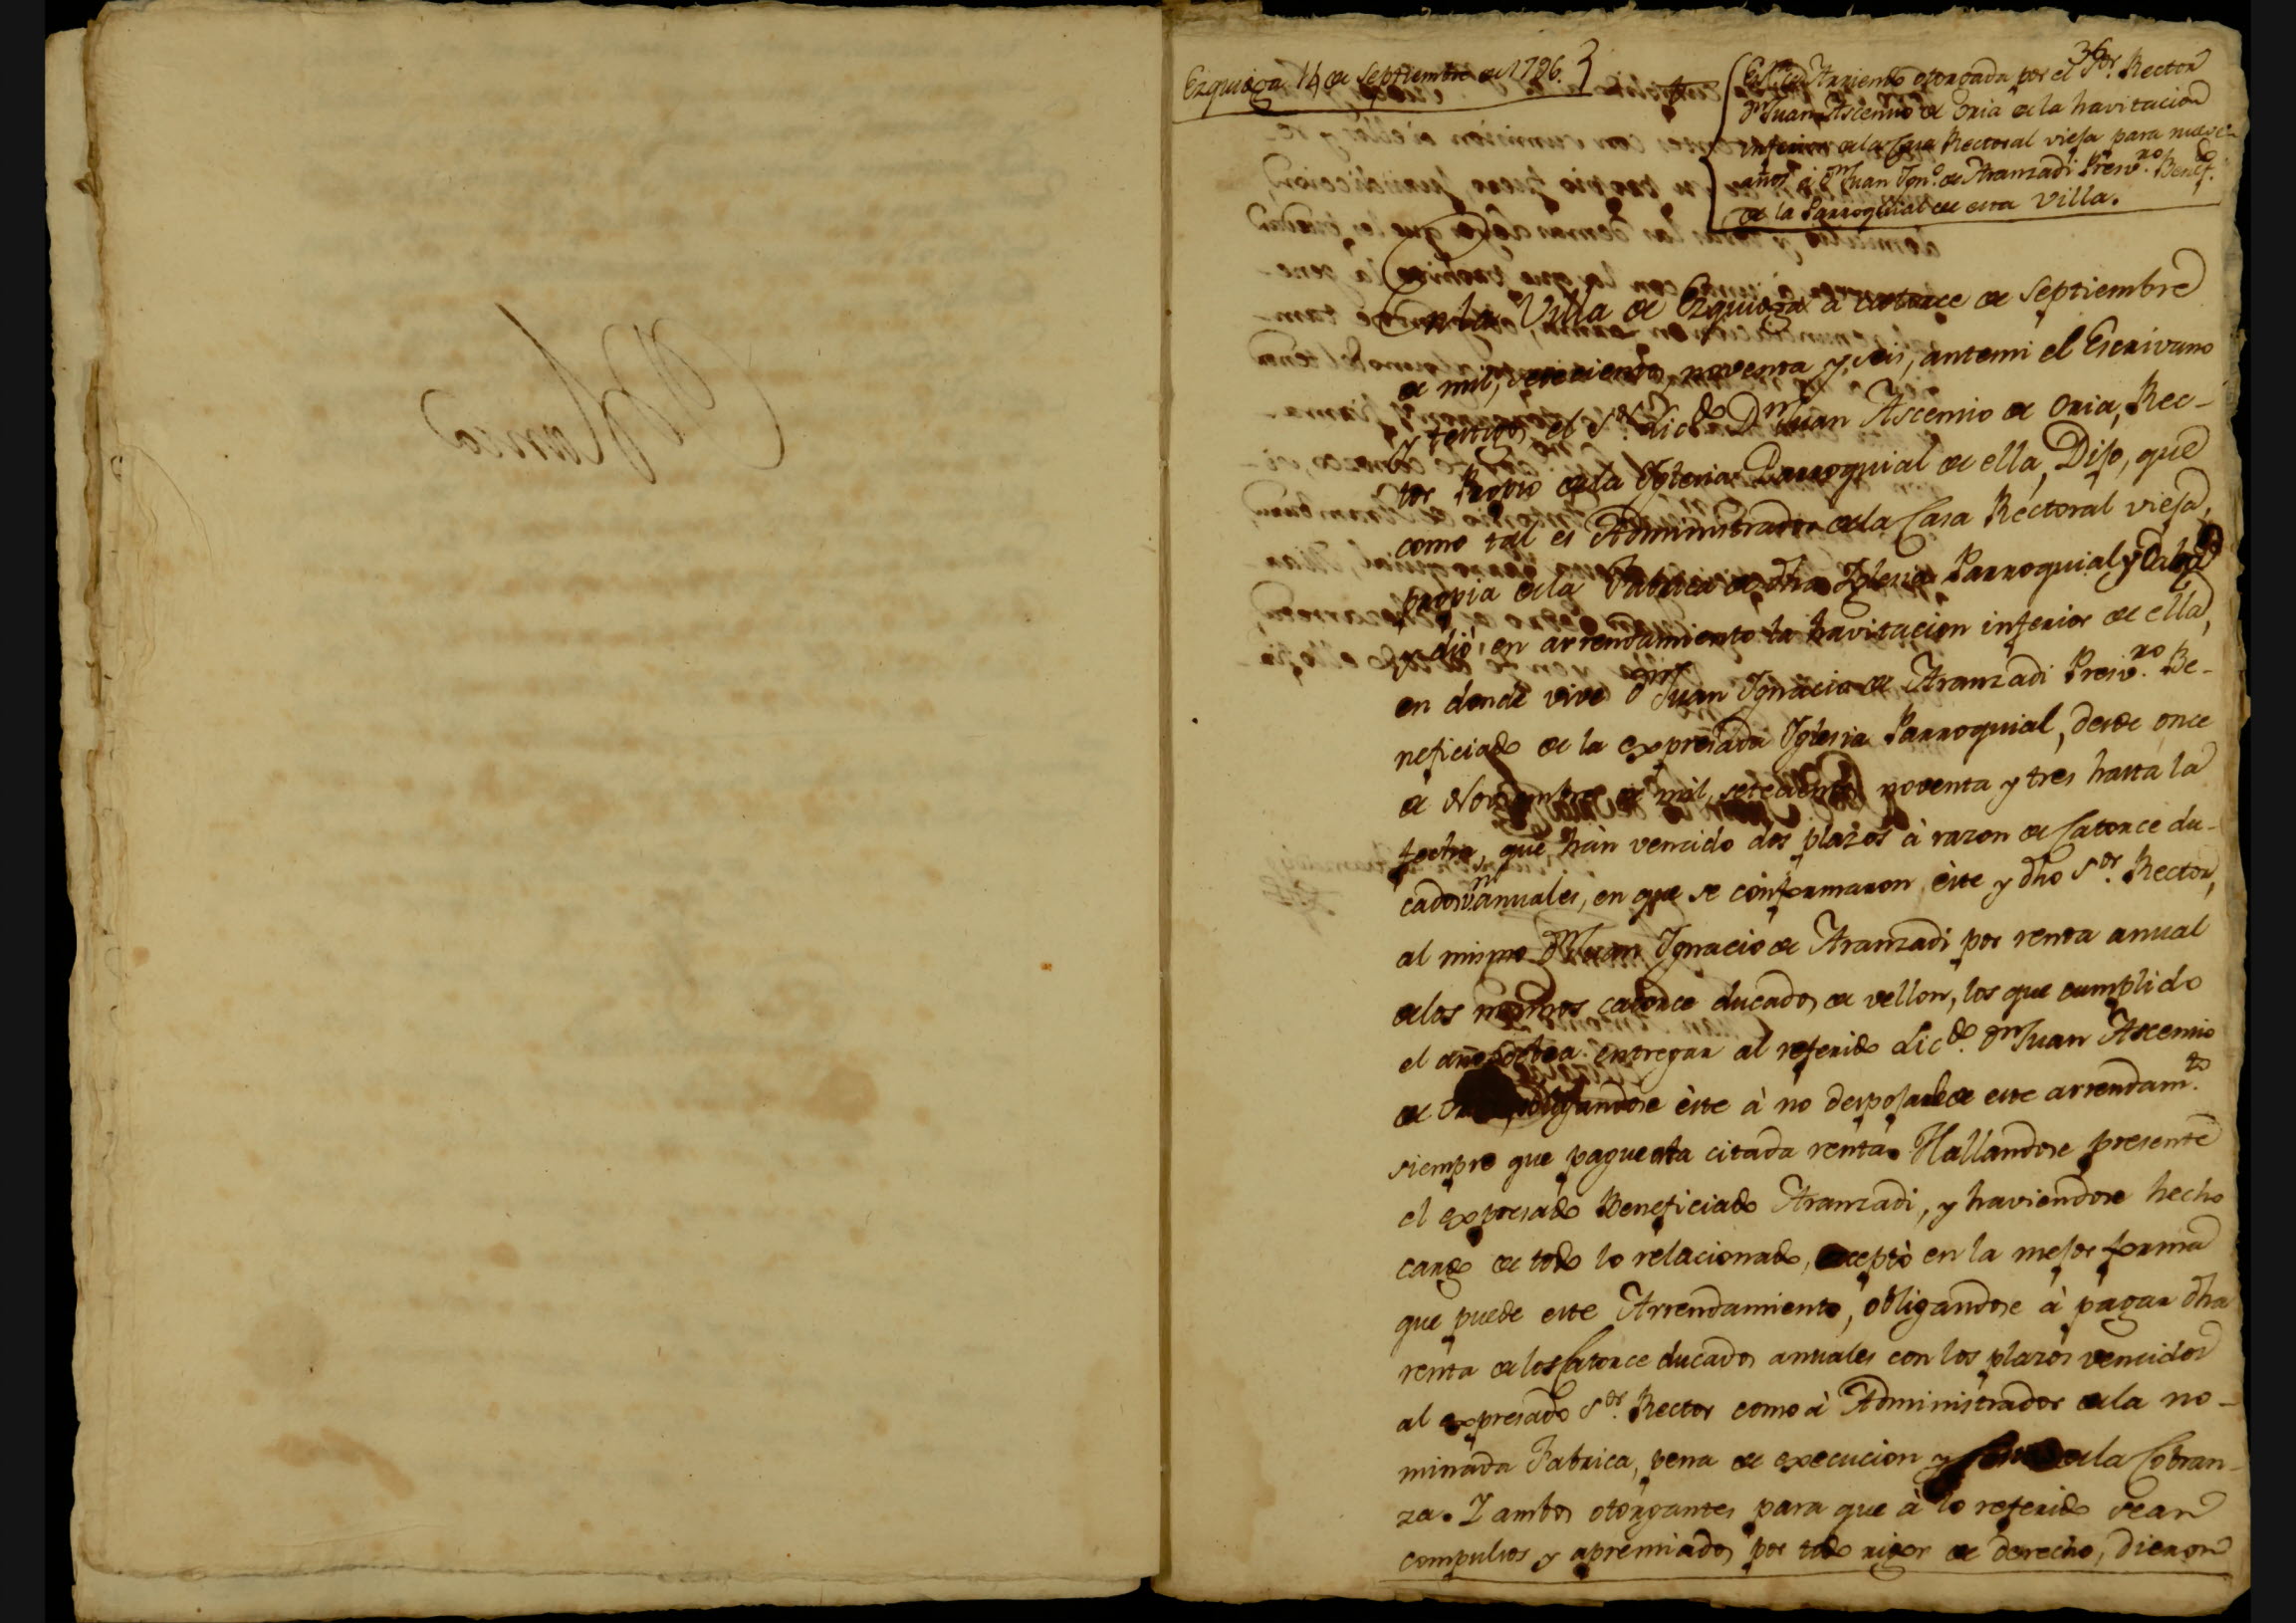 Ezquioga 14 de Septiembre de 1796.
36
Esc.ra de Arriendo otorgada por el S.or Rector
Dn Juan Ascensio de Oria de la havitacion
inferior de la Casa Rectoral vieja para nueve
años à Dn Juan Ign.o de Aranzadi Presv.ro Benef.do
de la Parroquial de esta Villa.
En la Villa de Ezquioga à catorce de Septiembre
de mil, setecientos, noventa y seis, antemi el Escrivano
y testigos, el S.or Lic.do Dn Juan Ascensio de Oria, Rec-
tor Propio de la Iglesia Parroquial de ella, Dijo, que
como tal es Administrador de la Casa Rectoral vieja,
propia de la Fabrica de dha Iglesia Parroquial y
dió en arrendamiento la havitacion inferior de ella,
en donde vive Dn Juan Ignacio de Aranzadi Presv.ro Be-
neficiado de la expresada Iglesia Parroquial, desde once
de Noviembre de mil, setecientos noventa y tres hasta la
fecha, que hàn vencido dos plazos à razon de Catorce du-
cados vn anuales, en que se conformaron èste y dho S.or Rector,
al mismo Dn Juan Ignacio de Aranzadi por renta anual
de los mismos catorce ducados de vellon, los que cumplido
el año entregar al referido Lic.do Dn Juan Ascensio
de obligandose èste à no despojarle de este arrendam.to
siempre que pague la citada renta. Hallandose presente
el expresado Beneficiado Aranzadi, y haviendose hecho
cargo de todo lo relacionado, aceptò en la mejor forma
que puede este Arrendamiento, obligandose à pagar dha
renta de los Catorce ducados anuales con los plazos vencidos
al expresado S.or Rector como à Administrador de la no-
minada Fabrica, pena de execucion y de la Cobran-
za. Y ambos otorgantes para que à lo referido sean
compulsos y apremiados por todo rigor de derecho, dieron